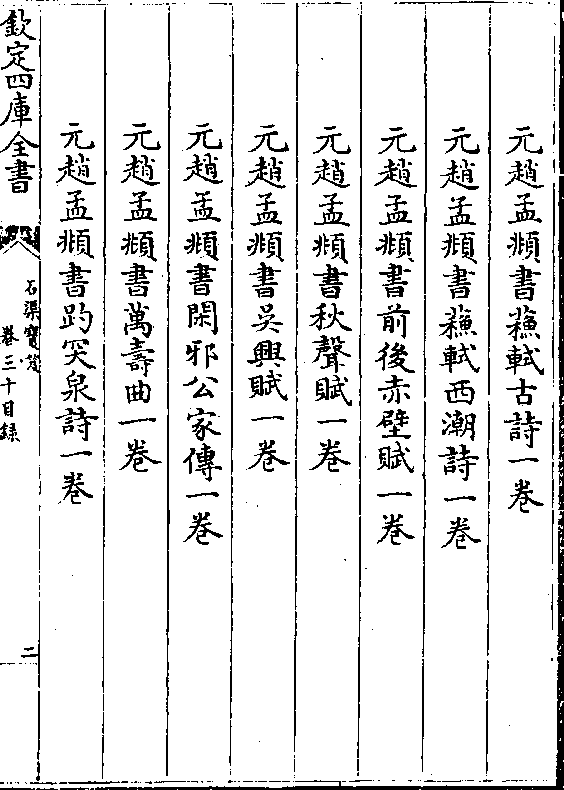 元趙孟頫書蘓軾古詩一卷
元趙孟頫書蘓軾西潮詩一卷
元趙孟頫書前後赤壁賦一卷
元趙孟頫書秋聲賦一卷
元趙孟頫書吳興賦一卷
元趙孟頫書閑邪公家傳一卷
元趙孟頫書萬壽曲一卷
元趙孟頫書趵突泉詩一卷
欽定四庫全書
石渠寶笈
卷三十目録
二